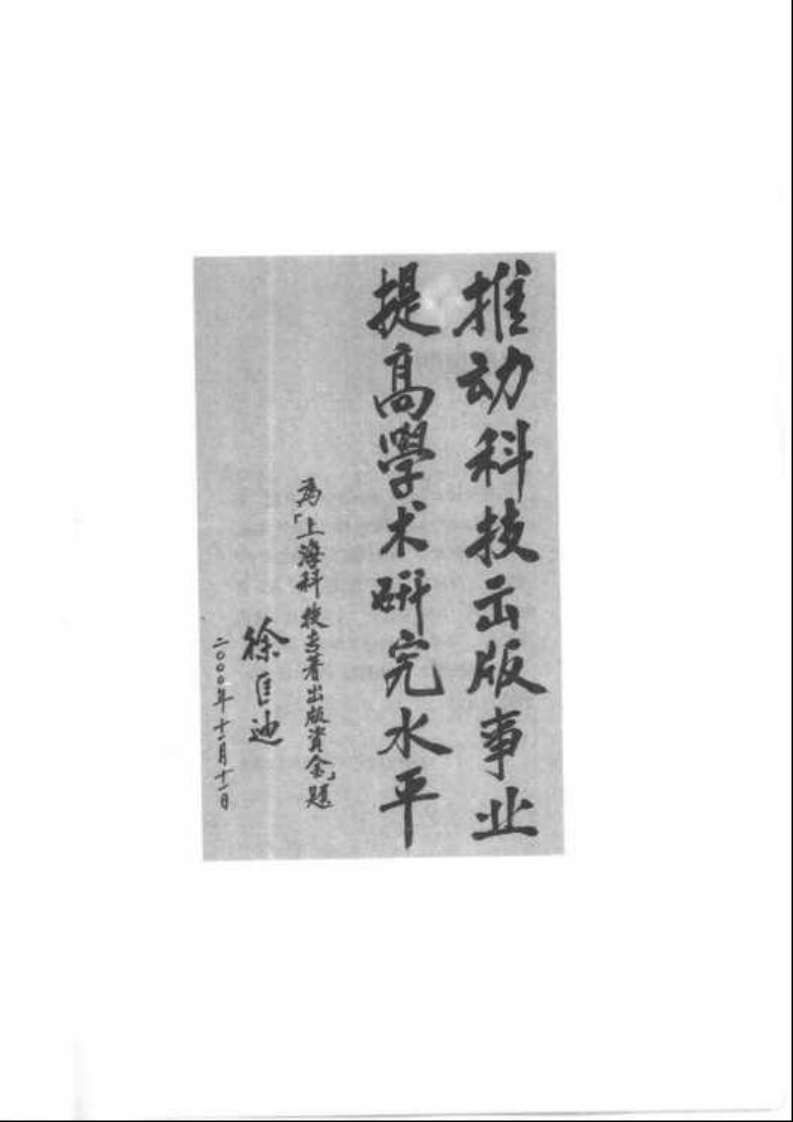 推动科技出版事业
提高學术研究水平
为「上海科技专著出版資金」题
徐匡迪
二〇〇〇年十二月十二日